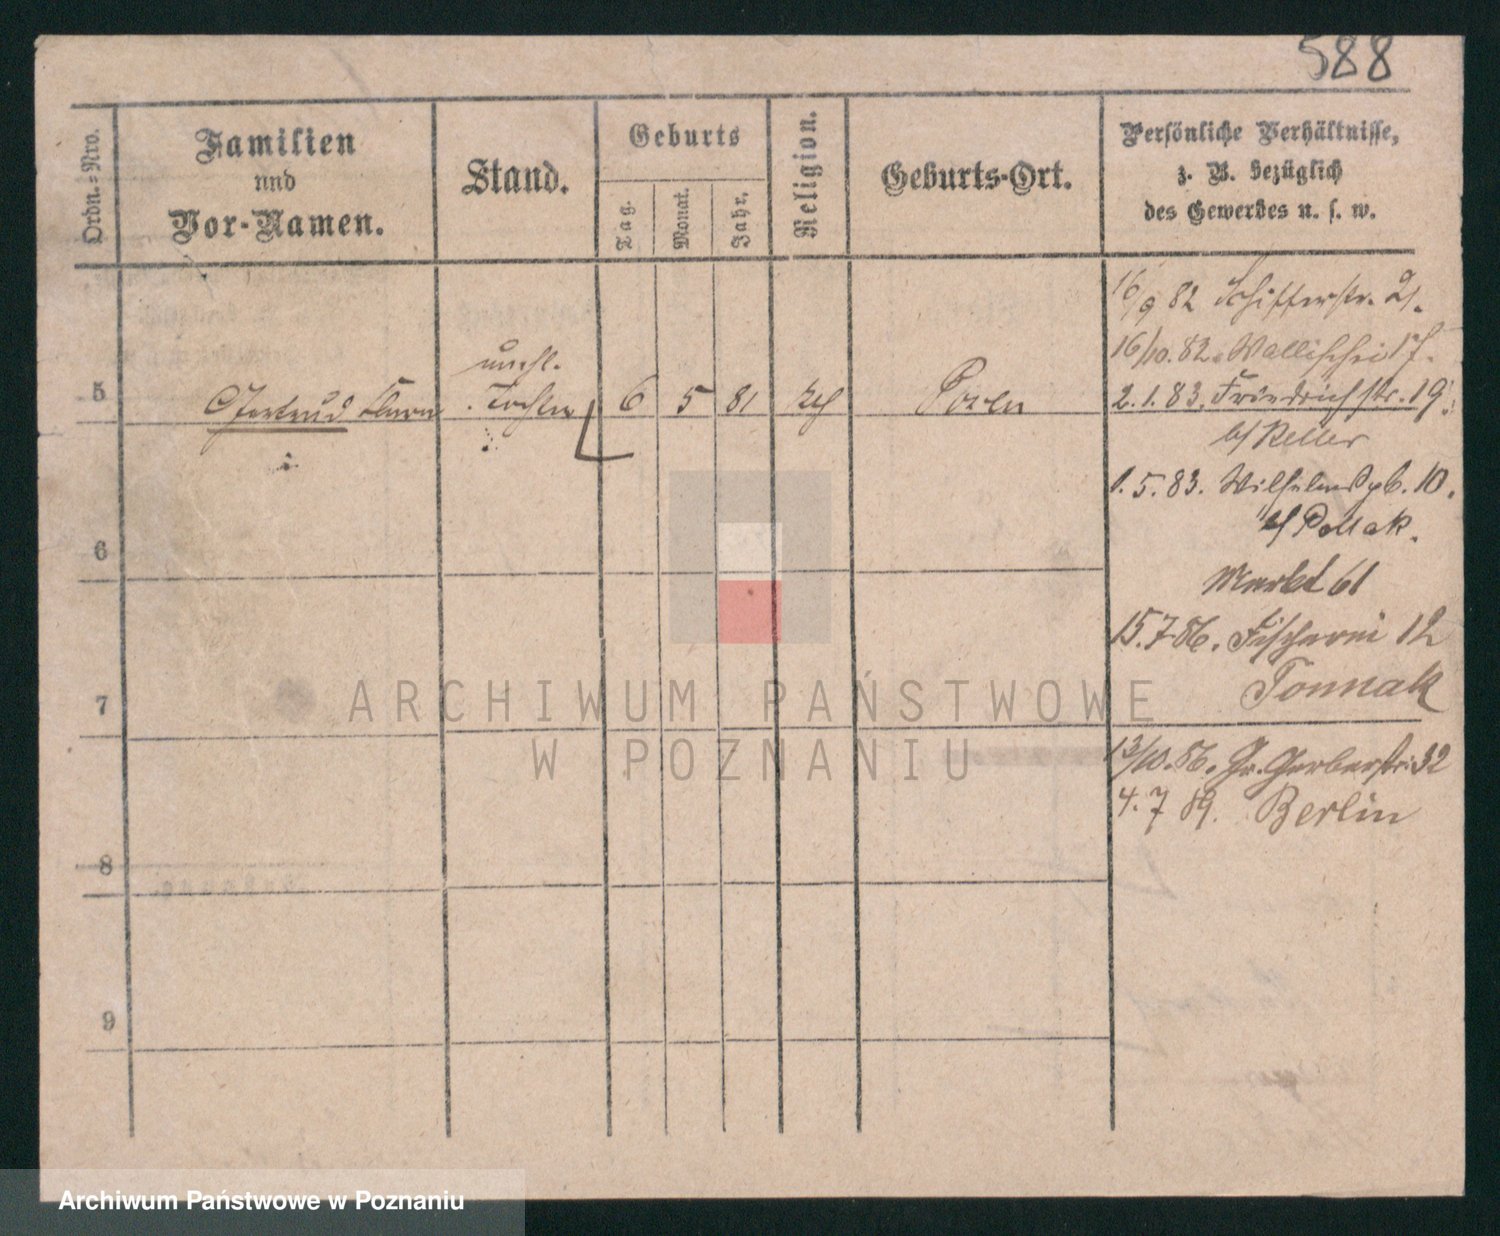 588
Ordn.-Nro.
Familien
und
Vor-Namen.
Stand.
Geburts
Tag.
Monat.
Jahr.
Religion.
Geburts-Ort.
Persönliche Verhältnisse,
z. B. bezüglich
des Gewerbes u. s. w.
16/9 82 Schifferstr. 21.
16/10. 82. Wallischei 17.
unehl.
5 Gertrud Clara Tochter 6 5 81 Posen
2. 1. 83. Friedrichstr. 19.
b/ Keller
1. 5. 83. Wilhelmspl. 10.
b/ Pollak.
6
Markt 61
15. 7. 86. Fischerei 12
Tonnak
7
13/10. 86. Gr. Gerberstr. 32
4. 7 89. Berlin
8
9
ARCHIWUM PAŃSTWOWE
W POZNANIU
Archiwum Państwowe w Poznaniu